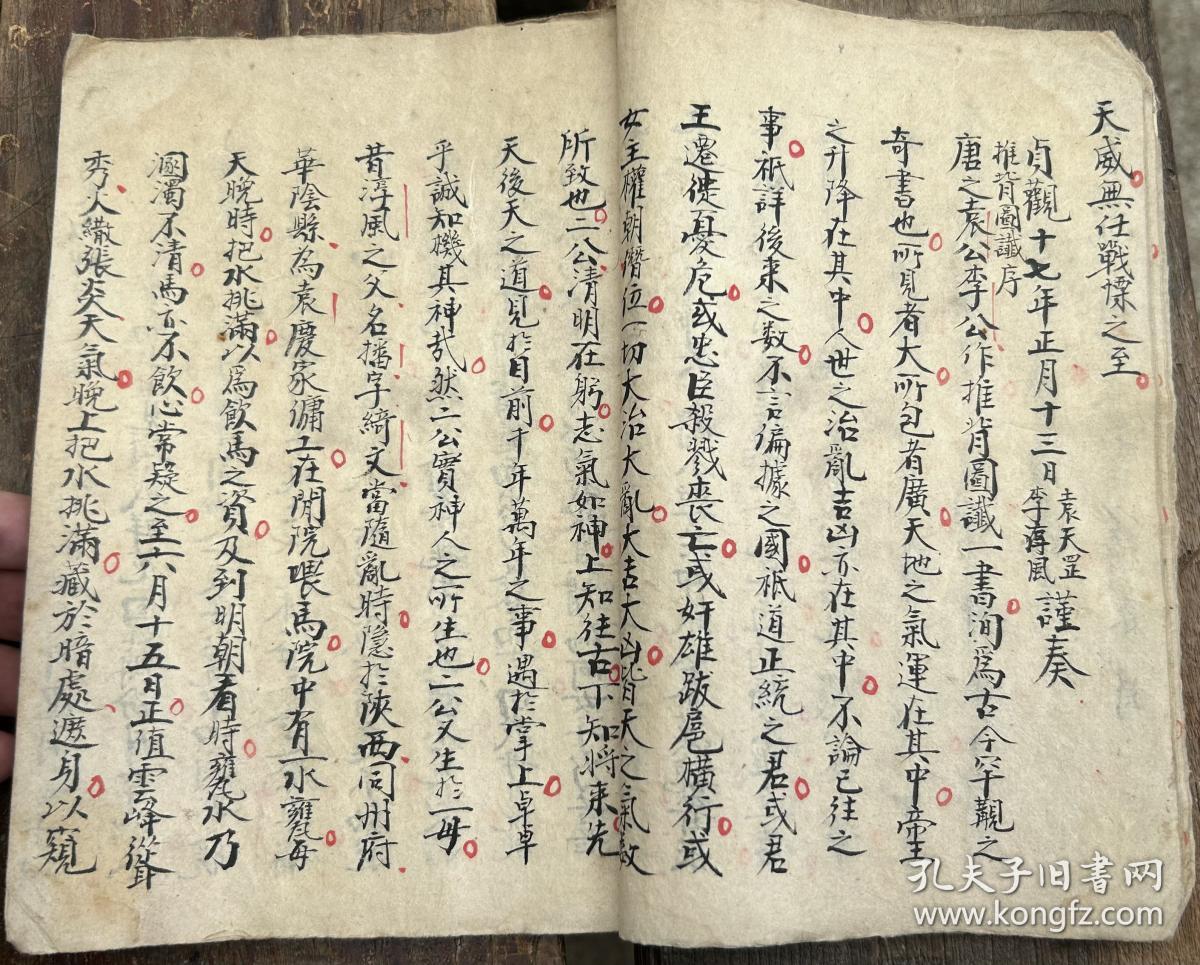 天威無任戰慄之至
貞觀十七年正月十三日袁天罡李淳風謹奏
推背圖讖序
唐之袁公李公作推背圖讖一書洵為古今罕觀之
奇書也所見者大所包者廣天地之氣運在其中帝王
之升降在其中人世之治亂吉凶亦在其中不論已往之
事祇詳後来之数不言偏據之國祇道正統之君或君
王遷徙憂危或忠臣殺戮喪亡或奸雄跋扈橫行或
女主權朝僭位一切大治大亂大吉大凶皆天之氣数
所致也二公清明在躬志氣如神上知往古下知將来先
天後天之道見於目前千年萬年之事遇於掌上卓卓
乎誠知機其神㢤然二公實神人之所生也二公又生於一母
昔淳風之父名播字綺文當隨亂時隱於陝西同州府
華陰縣為袁慶家傭工在閒院喂馬院中有一水甕每
天晚時把水挑滿以為飲馬之資及到明朝看時甕水乃
溷濁不清馬亦不飲心常疑之至六月十五日正值雲峰聳
秀火繖張炎天氣晚上把水挑滿藏於暗處遮身以窺
孔夫子旧书网
www.kongfz.com